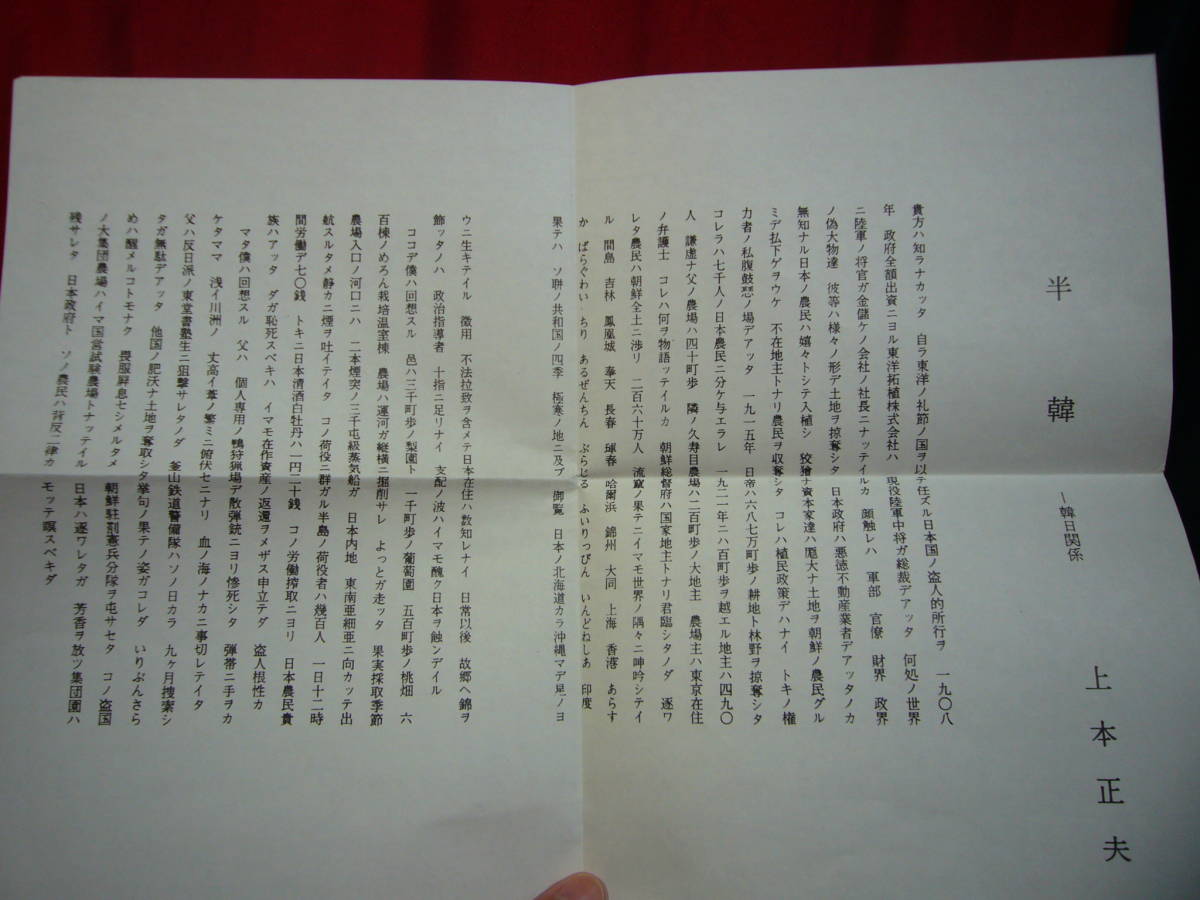 半韓
―韓日関係
上本正夫
貴方ハ知ラナカッタ 自ラ東洋ノ礼節ノ国ヲ以テ任ズル日本国ノ盗人的所行ヲ 一九〇八
年 政府全額出資ニヨル東洋拓植株式会社ハ 現役陸軍中将ガ総裁デアッタ 何処ノ世界
ニ陸軍ノ将官ガ金儲ケノ会社ノ社長ニナッテイルカ 顔触レハ 軍部 官僚 財界 政界
ノ偽大物達 彼等ハ様々ノ形デ土地ヲ掠奪シタ 日本政府ハ悪徳不動産業者デアッタノカ
無知ナル日本ノ農民ハ嬉々トシテ入植シ 狡獪ナ資本家達ハ厖大ナ土地ヲ朝鮮ノ農民グル
ミデ払下ゲヲウケ 不在地主トナリ農民ヲ収奪シタ コレハ植民政策デハナイ トキノ権
力者ノ私腹鼓惑ノ場デアッタ 一九一五年 日帝ハ六八七万町歩ノ耕地ト林野ヲ掠奪シタ
コレラハ七千人ノ日本農民ニ分ケ与エラレ 一九二一年ニハ百町歩ヲ越エル地主ハ四九〇
人 謙虚ナ父ノ農場ハ四十町歩 隣ノ久寿目農場ハ二百町歩ノ大地主 農場主ハ東京在住
ノ弁護士 コレハ何ヲ物語ッテイルカ 朝鮮総督府ハ国家地主トナリ君臨シタノダ 逐ワ
レタ農民ハ朝鮮全土ニ渉リ 二百六十万人 流竄ノ果テニイマモ世界ノ隅々ニ呻吟シテイ
ル 間島 吉林 鳳凰城 奉天 長春 琿春 哈爾浜 錦州 大同 上海 香港 あらす
か ぱらぐわい ちり あるぜんちん ぶらじる ふいりっぴん いんどねしあ 印度
果テハ ソ聯ノ共和国ノ四季 極寒ノ地ニ及ブ 御覧 日本ノ北海道カラ沖縄マデ見ノヨ
ウニ生キテイル 徴用 不法拉致ヲ含メテ日本在住ハ数知レナイ 日常以後 故郷ヘ錦ヲ
飾ッタノハ 政治指導者 十指ニ足リナイ 支配ノ波ハイマモ醜ク日本ヲ蝕ンデイル
ココデ僕ハ回想スル 邑ハ三千町歩ノ梨園ト 一千町歩ノ葡萄園 五百町歩ノ桃畑 六
百棟ノめろん栽培温室棟 農場ハ運河ガ縦横ニ掘削サレ よっとガ走ッタ 果実採取季節
農場入口ノ河口ニハ 二本煙突ノ三千屯級蒸気船ガ 日本内地 東南亜細亜ニ向カッテ出
航スルタメ静カニ煙ヲ吐イテイタ コノ荷役ニ群ガル半島ノ荷役者ハ幾百人 一日十二時
間労働デ七〇銭 トキニ日本清酒白牡丹ハ一円二十銭 コノ労働搾取ニヨリ 日本農民貴
族ハアッタ ダガ恥死スベキハ イマモ在作資産ノ返還ヲメザス申立テダ 盗人根性カ
マタ僕ハ回想スル 父ハ 個人専用ノ鴨狩猟場デ散弾銃ニヨリ惨死シタ 弾帯ニ手ヲカ
ケタママ 浅イ川洲ノ 丈高イ葦ノ繁ミニ俯伏セニナリ 血ノ海ノナカニ事切レテイタ
父ハ反日派ノ東堂書塾生ニ狙撃サレタノダ 釜山鉄道警備隊ハソノ日カラ 九ヶ月捜索シ
タガ無駄デアッタ 他国ノ肥沃ナ土地ヲ奪取シタ挙句ノ果テノ姿ガコレダ いりぶんさら
めハ醒メルコトモナク 畏服屏息セシメルタメ 朝鮮駐剳憲兵分隊ヲ屯サセタ コノ盗国
ノ大集団農場ハイマ国営試験農場トナッテイル 日本ハ逐ワレタガ 芳香ヲ放ツ集団園ハ
残サレタ 日本政府ト ソノ農民ハ背反二律カ モッテ瞑スベキダ